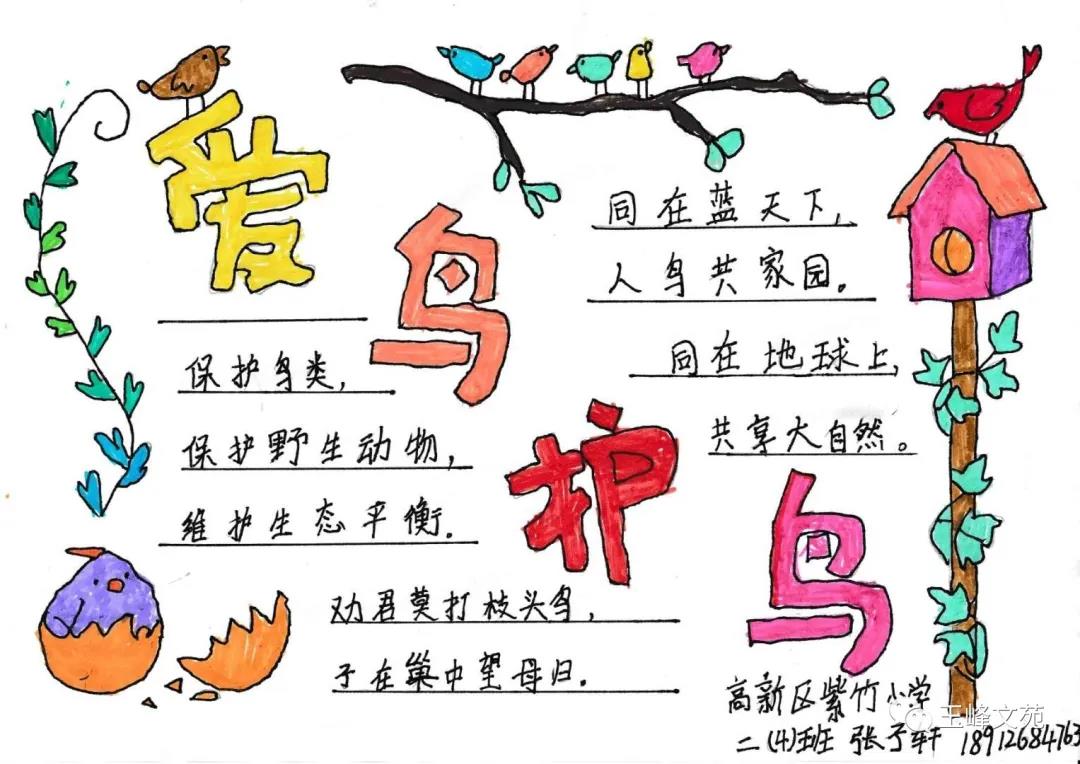 爱鸟护鸟
保护鸟类，
保护野生动物，
维护生态平衡.
劝君莫打枝头鸟，
子在巢中望母归.
同在蓝天下，
人鸟共家园。
同在地球上，
共享大自然。
高新区紫竹小学
二(4)班 张予轩 18912684763
玉峰文苑